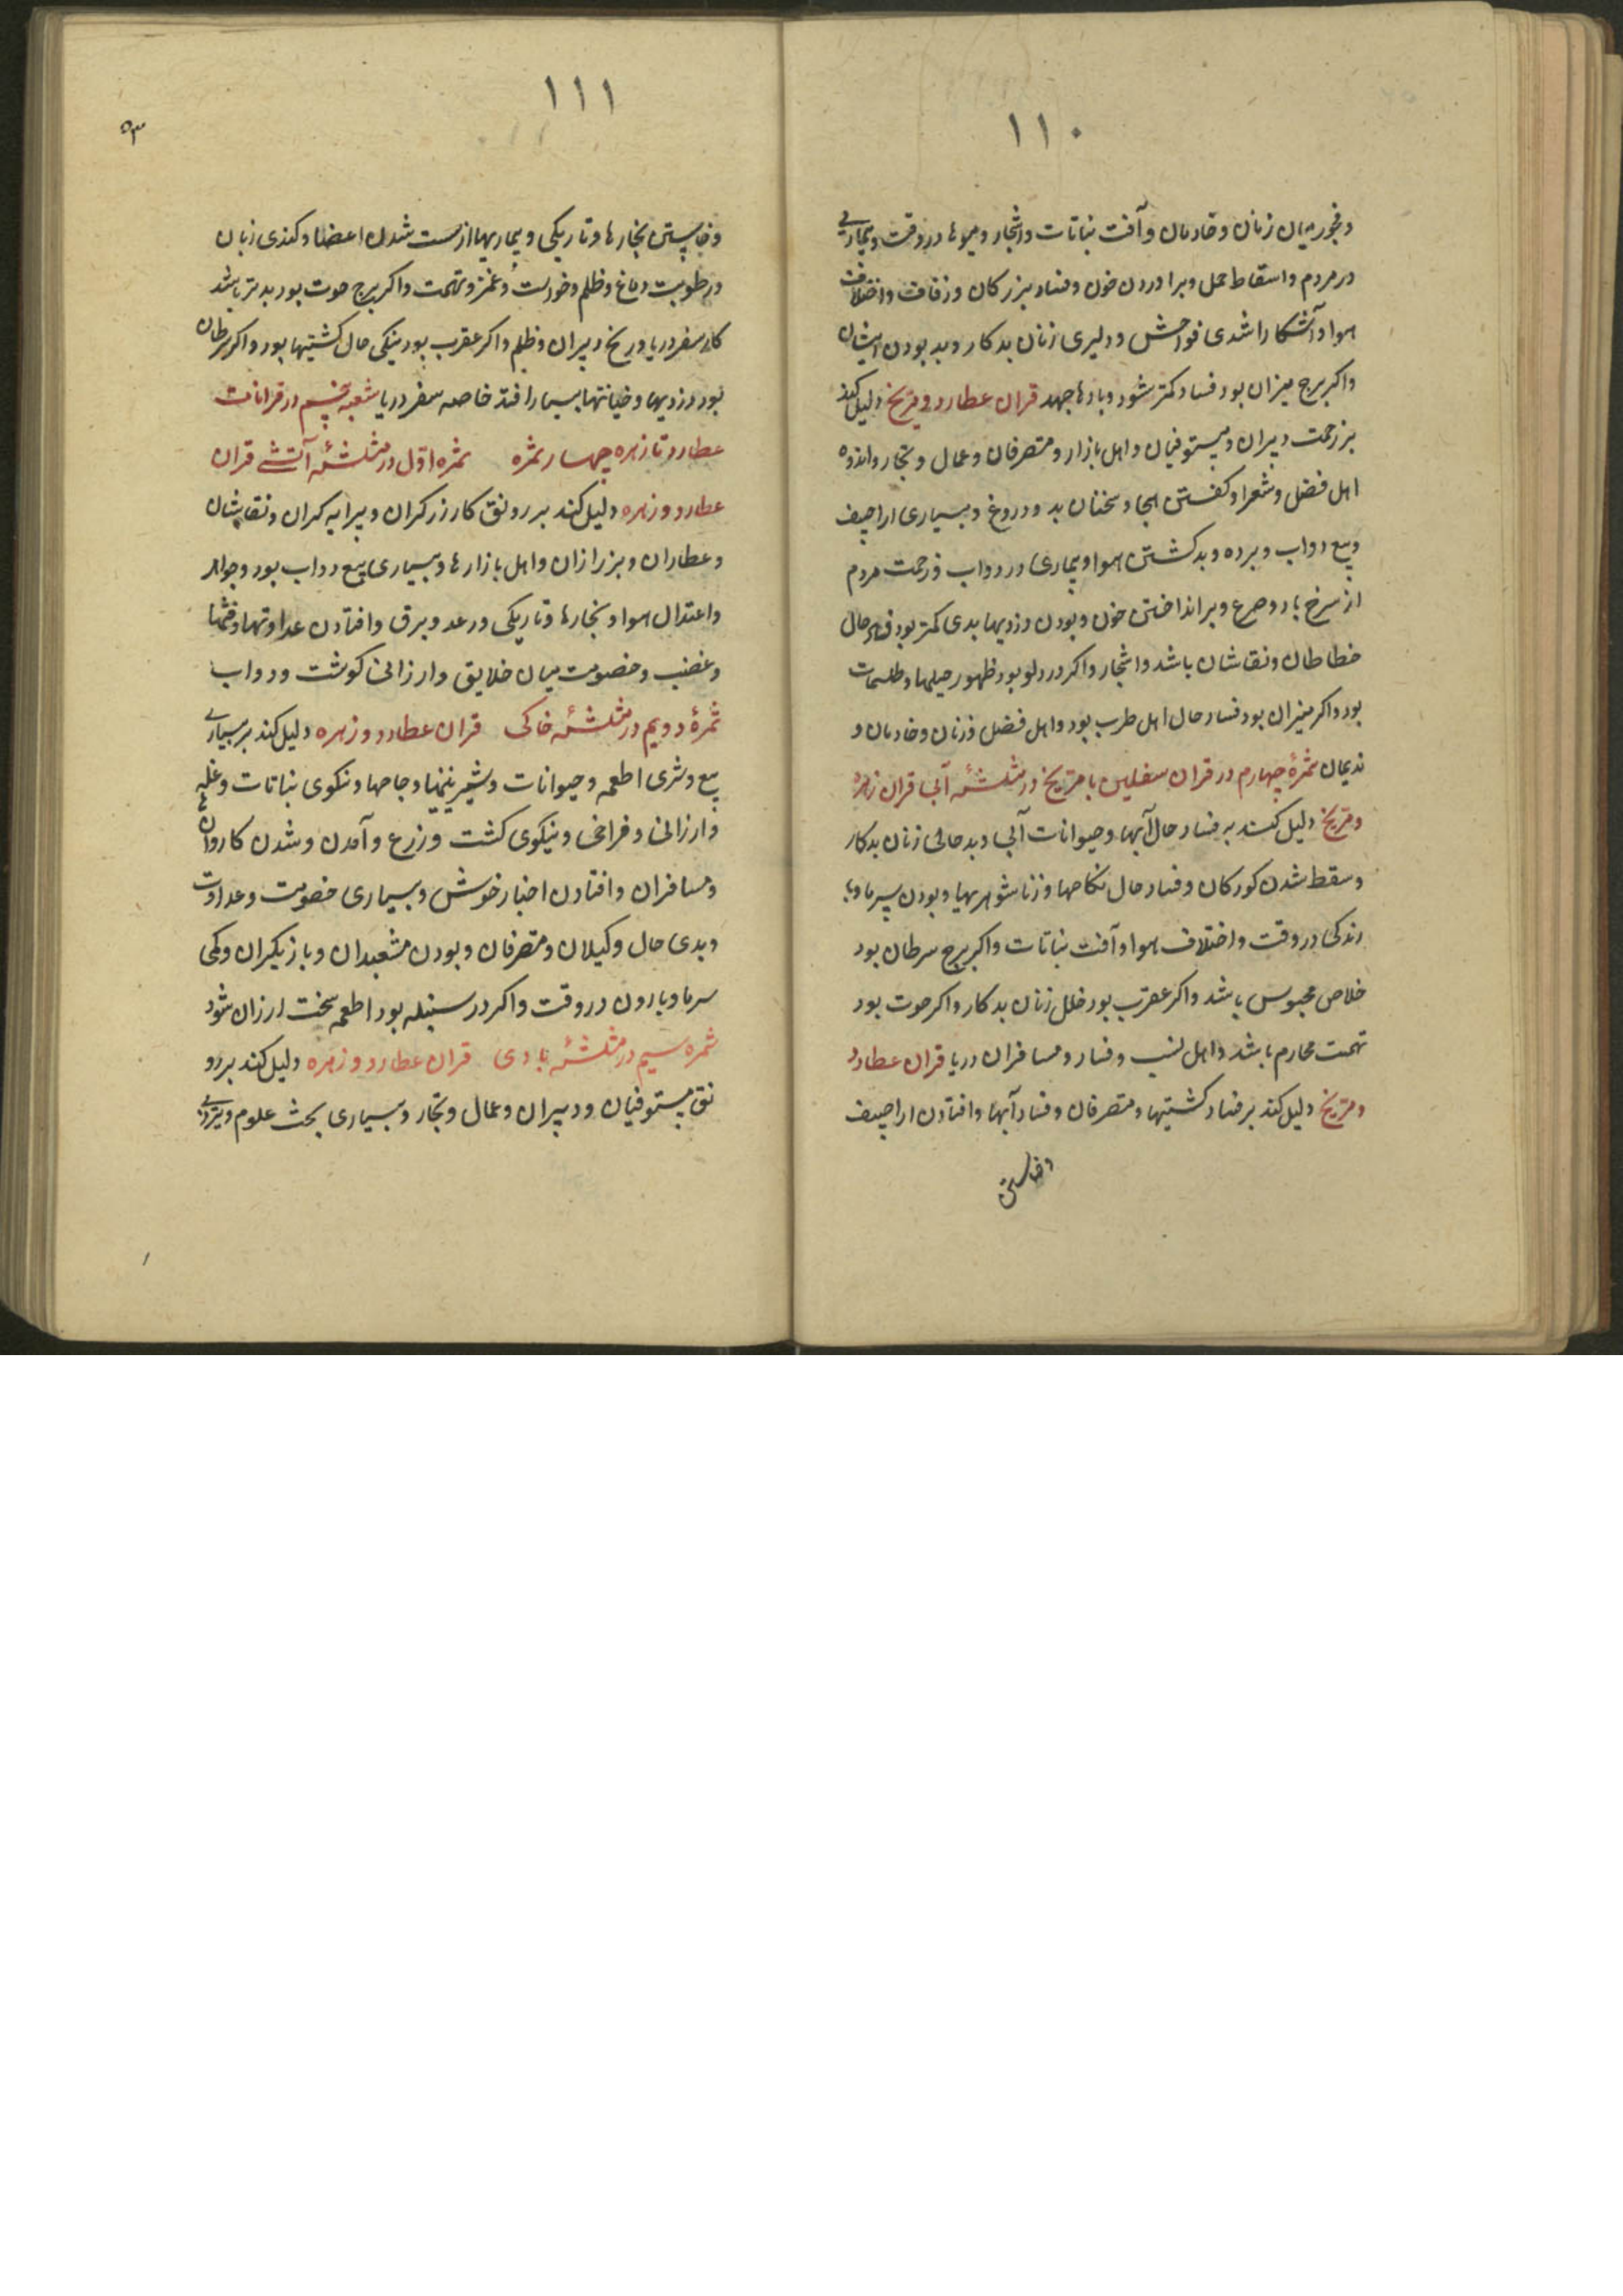 ١١٠
وفجور میان زنان وخادمان وآفت نباتات واشجار ومیوها در وقت وبیماریی
در مردم واسقاط حمل وبراوردن خون وفساد بزرکان وزفافت واختلاف
هوا وآشکارا شدی فواحش ودلیری زنان بدکار وبد بودن ایشان
واکر برج میزان بود فساد کمتر شود وبادها جهد قران عطارد ومریخ دلیل کند
بر زحمت دبیران ومستوفیان واهل بازار ومتصرفان وعمال وتجار واندوه
اهل فضل وشعرا وکفتن هجا وسخنان بد ودروغ وبسیاری اراجیف
وبیع دواب وبرده وبد کشتن هوا وبیماری در دواب وزحمت مردم
از سرخ باد وصرع وبرانداختن خون وبودن دزدیها بدی کمتر بود حال
خطاطان ونقاشان باشد واشجار واکر در دلو بود ظهور حیلها وطلسمات
بود واکر میزان بود فساد حال اهل طرب بود واهل فضل وزنان وخادمان و
ندیمان ثمرهٔ چهارم در قران سفلیین با مریخ در مثلثهٔ آبی قران زهره
ومریخ دلیل کند به فساد حال آبها وحیوانات آبی وبد حالی زنان بدکار
وسقط شدن کودکان وفساد حال نکاحها وزناشوهریها وبودن سرما وبا
رندکی در وقت واختلاف هوا وآفت نباتات واکر برج سرطان بود
خلاص محبوس باشد واکر عقرب بود خلل زنان بدکار واکر حوت بود
تهمت محارم باشد واهل نسب وفساد ومسافران دریا قران عطارد
ومریخ دلیل کند بر فساد کشتیها ومتصرفان وفساد آبها وافتادن اراجیف
وخاستن
١١١
٥٣
وخاستن بخارها وتاریکی وبیماریها از سست شدن اعضا وکندی زبان
ورطوبت دماغ وظلم وغمز وتهمت واکر برج حوت بود بدتر باشد
کار سفر دریا ورنج دبیران وظلم واکر عقرب بود نیکی حال کشتیها بود واکر سرطان
بود دزدیها وخیانتها بسیار افتد خاصه سفر دریا شعبه پنجم در قرانات
عطارد تا زهره چهار ثمره ثمره اوّل در مثلثهٔ آتشی قران
عطارد وزهره دلیل کند بر رونق کار زرکران وپیرایه کران ونقاشان
وعطاران وبزازان واهل بازارها وبسیاری بیع دواب بود وجواهر
واعتدال هوا وبخارها وتاریکی ورعد وبرق وافتادن عداوتها وخشمها
وغضب وخصومت میان خلایق وارزانی کوشت ودواب
ثمرهٔ دویم در مثلثهٔ خاکی قران عطارد وزهره دلیل کند بر بسیاری
بیع وشری اطعمه وحیوانات وشیرینیها وجامها ونکوی نباتات وغله
وارزانی وفراخی ونیکوی کشت وزرع وآمدن وشدن کاروانها
ومسافران وافتادن اخبار خوش وبسیاری خصومت وعداوت
وبدی حال وکیلان ومتصرفان وبودن مشعبدان وبازیکران وکمی
سرما وبارون در وقت واکر در سنبله بود اطعمه سخت ارزان شود
ثمره سیم در مثلثهٔ بادی قران عطارد وزهره دلیل کند بر رو
نق مستوفیان ودبیران وعمال وتجار وبسیاری بحث علوم